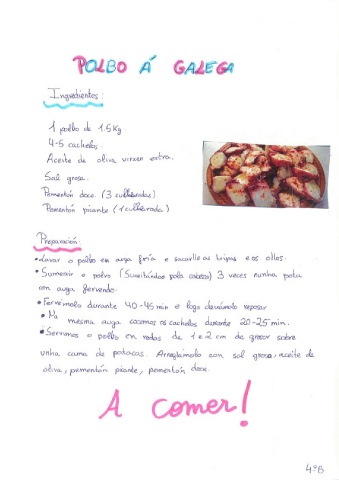 POLBO Á GALEGA
Ingredientes:
1 polbo de 1.5Kg
4-5 cachelos.
Aceite de oliva virxen extra.
Sal grosa.
Pementón doce. (3 culleradas)
Pementón picante (1 cullerada)
Preparación:
•Lavar o polbo en auga fría e sacarlle as tripas e os ollos.
•Sumerxir o polvo (suxeitándoo pola cabeza) 3 veces nunha pota
con auga fervendo.
•Fervémolo durante 40-45 min e logo deixámolo repousar
•Na mesma auga cocemos os cachelos durante 20-25 min.
•Servimos o polbo en rodas de 1 e 2 cm de grosor sobre
unha cama de patacas. Arranxámolo con sal grosa, aceite de
oliva, pementón picante, pementón doce.
A comer!
4ºB